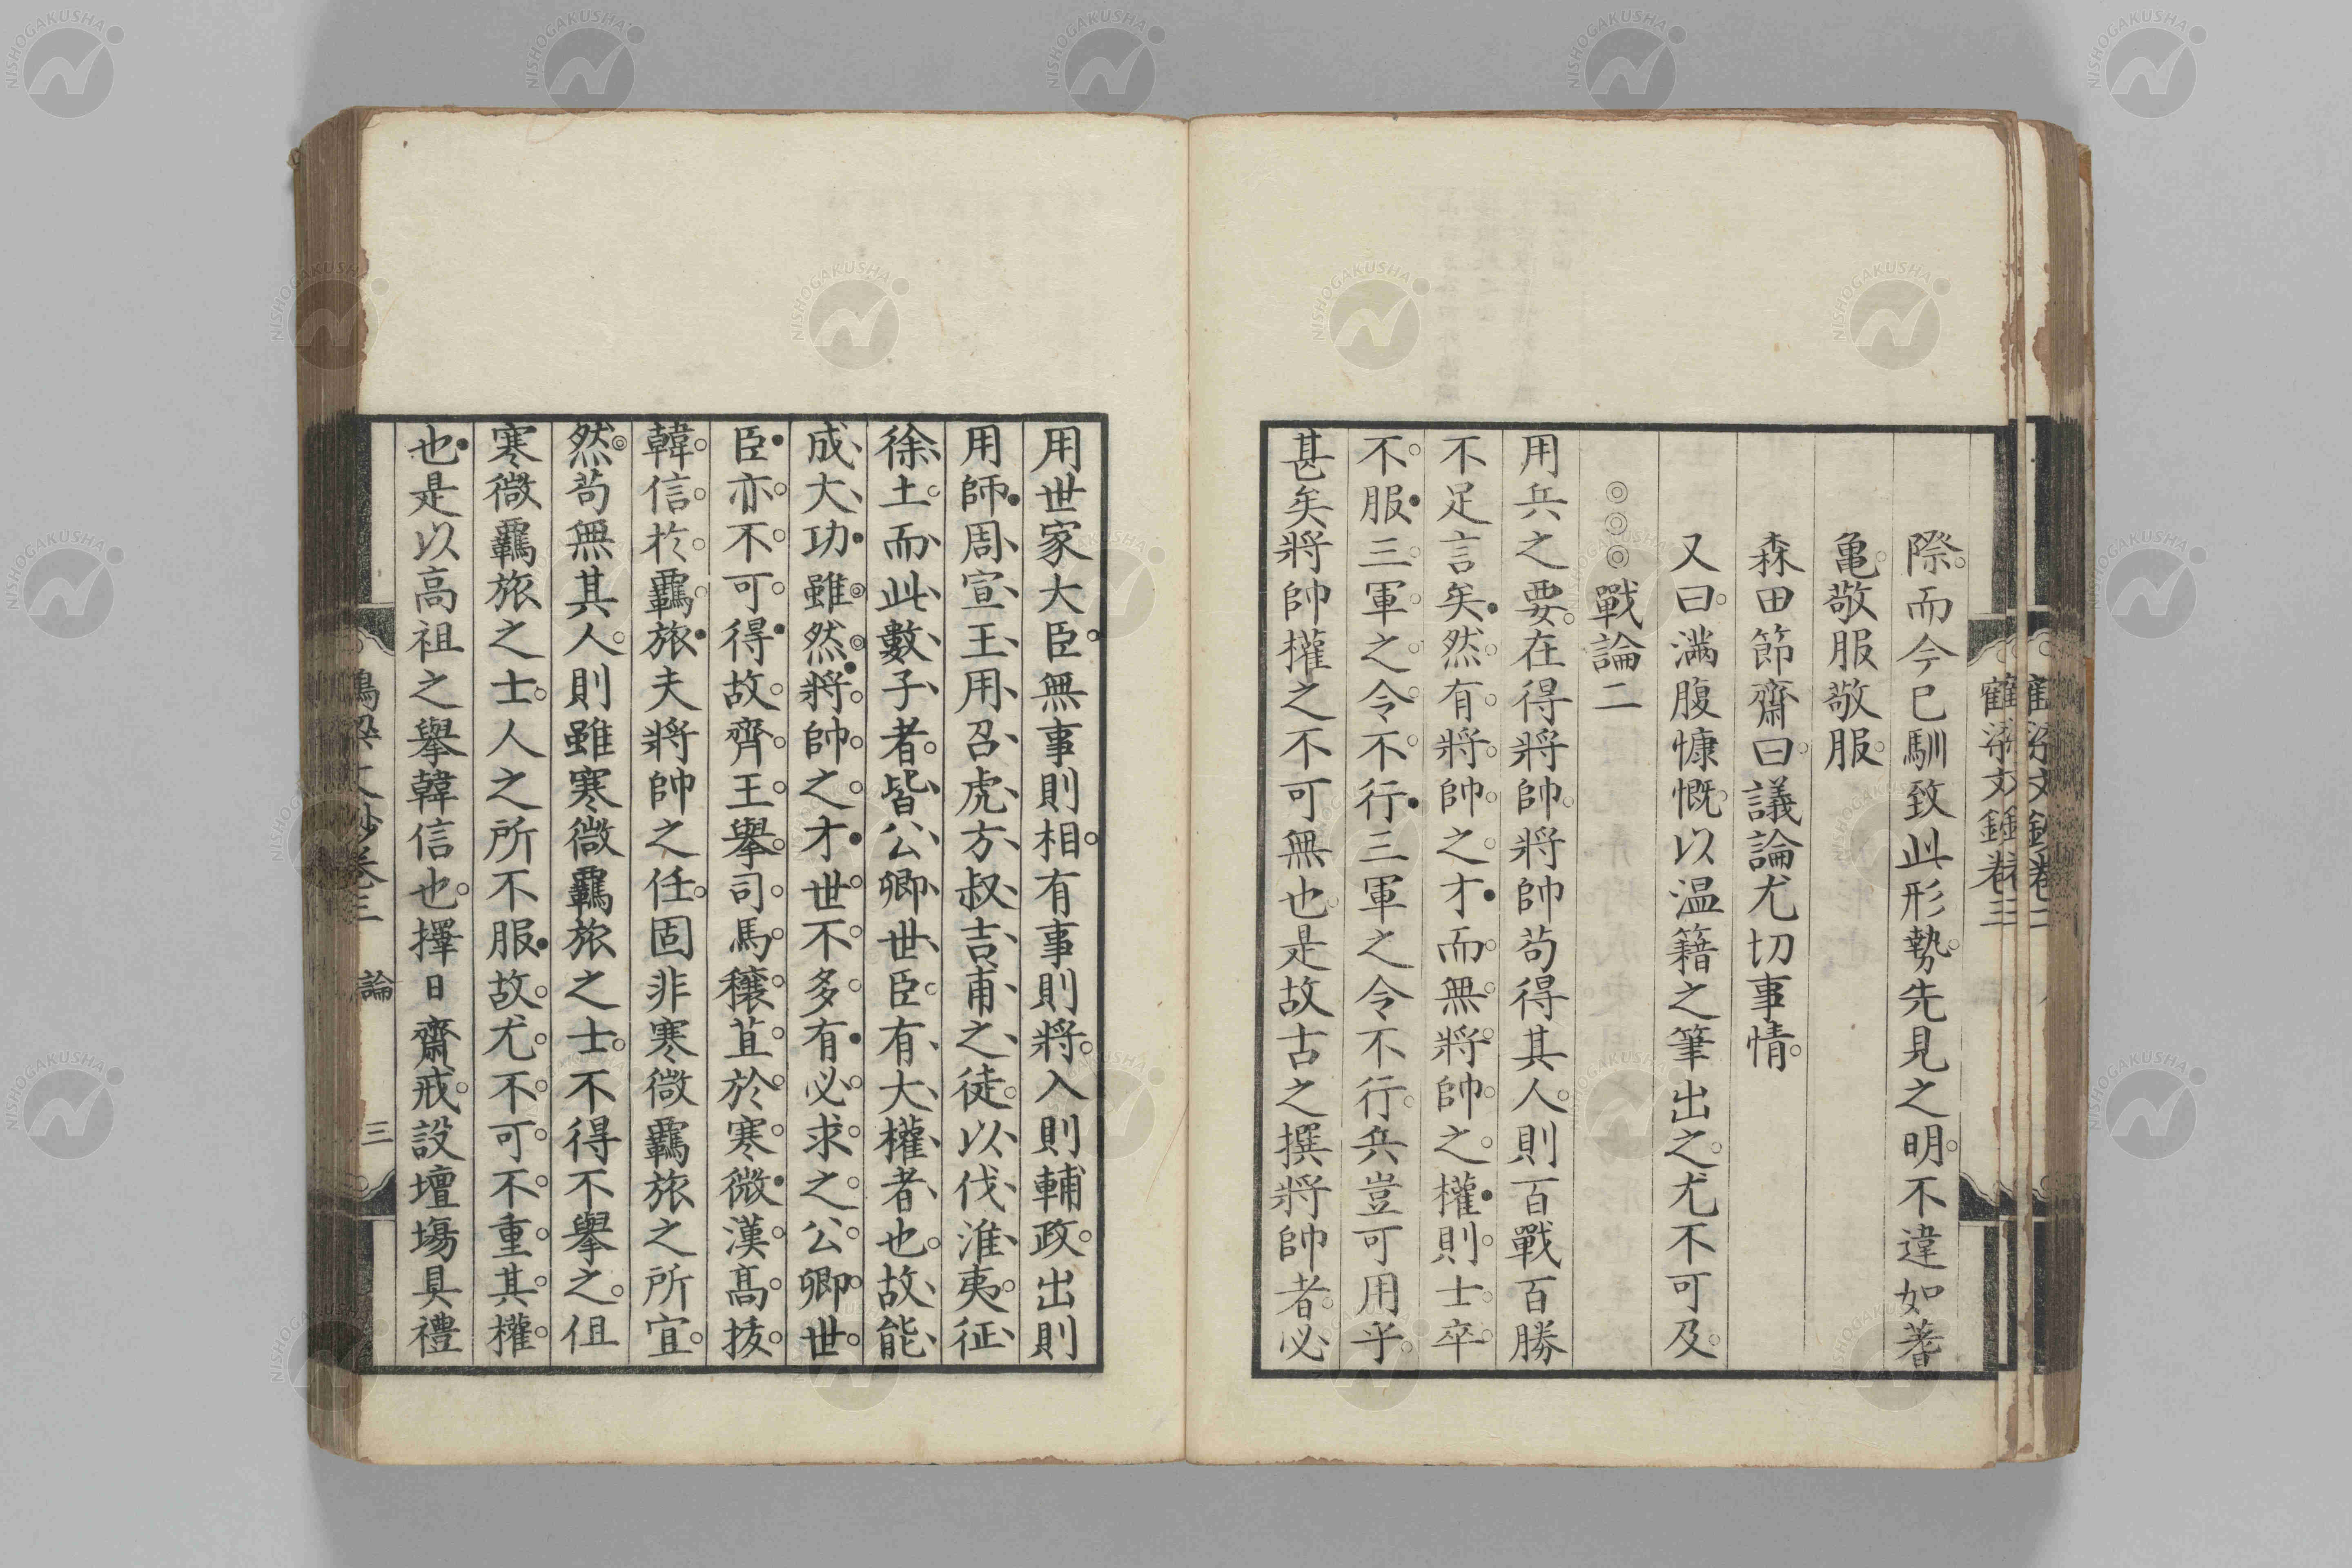 際而今已馴致此形勢先見之明不違如蓍
亀敬服敬服
森田節齋曰議論尤切事情
又曰滿腹慷慨以温籍之筆出之尤不可及
◎◎◎戰論二
用兵之要在得將帥將帥苟得其人則百戰百勝
不足言矣然有將帥之才而無將帥之權則士卒
不服三軍之令不行三軍之令不行兵豈可用乎
甚矣將帥權之不可無也是故古之撰將帥者必
用世家大臣無事則相有事則將入則輔政出則
用師周宣王用召虎方叔吉甫之徒以伐淮夷征
徐土而此數子者皆公卿世臣有大權者也故能
成大功雖然將帥之才世不多有必求之公卿世
臣亦不可得故齊王擧司馬穰苴於寒微漢高拔
韓信於羈旅夫將帥之任固非寒微羈旅之所宜
然苟無其人則雖寒微羈旅之士不得不擧之但
寒微羈旅之士人之所不服故尤不可不重其權
也是以高祖之擧韓信也擇日齋戒設壇塲具禮
鶴梁文鈔卷三
論
三
NISHOGAKUSHA